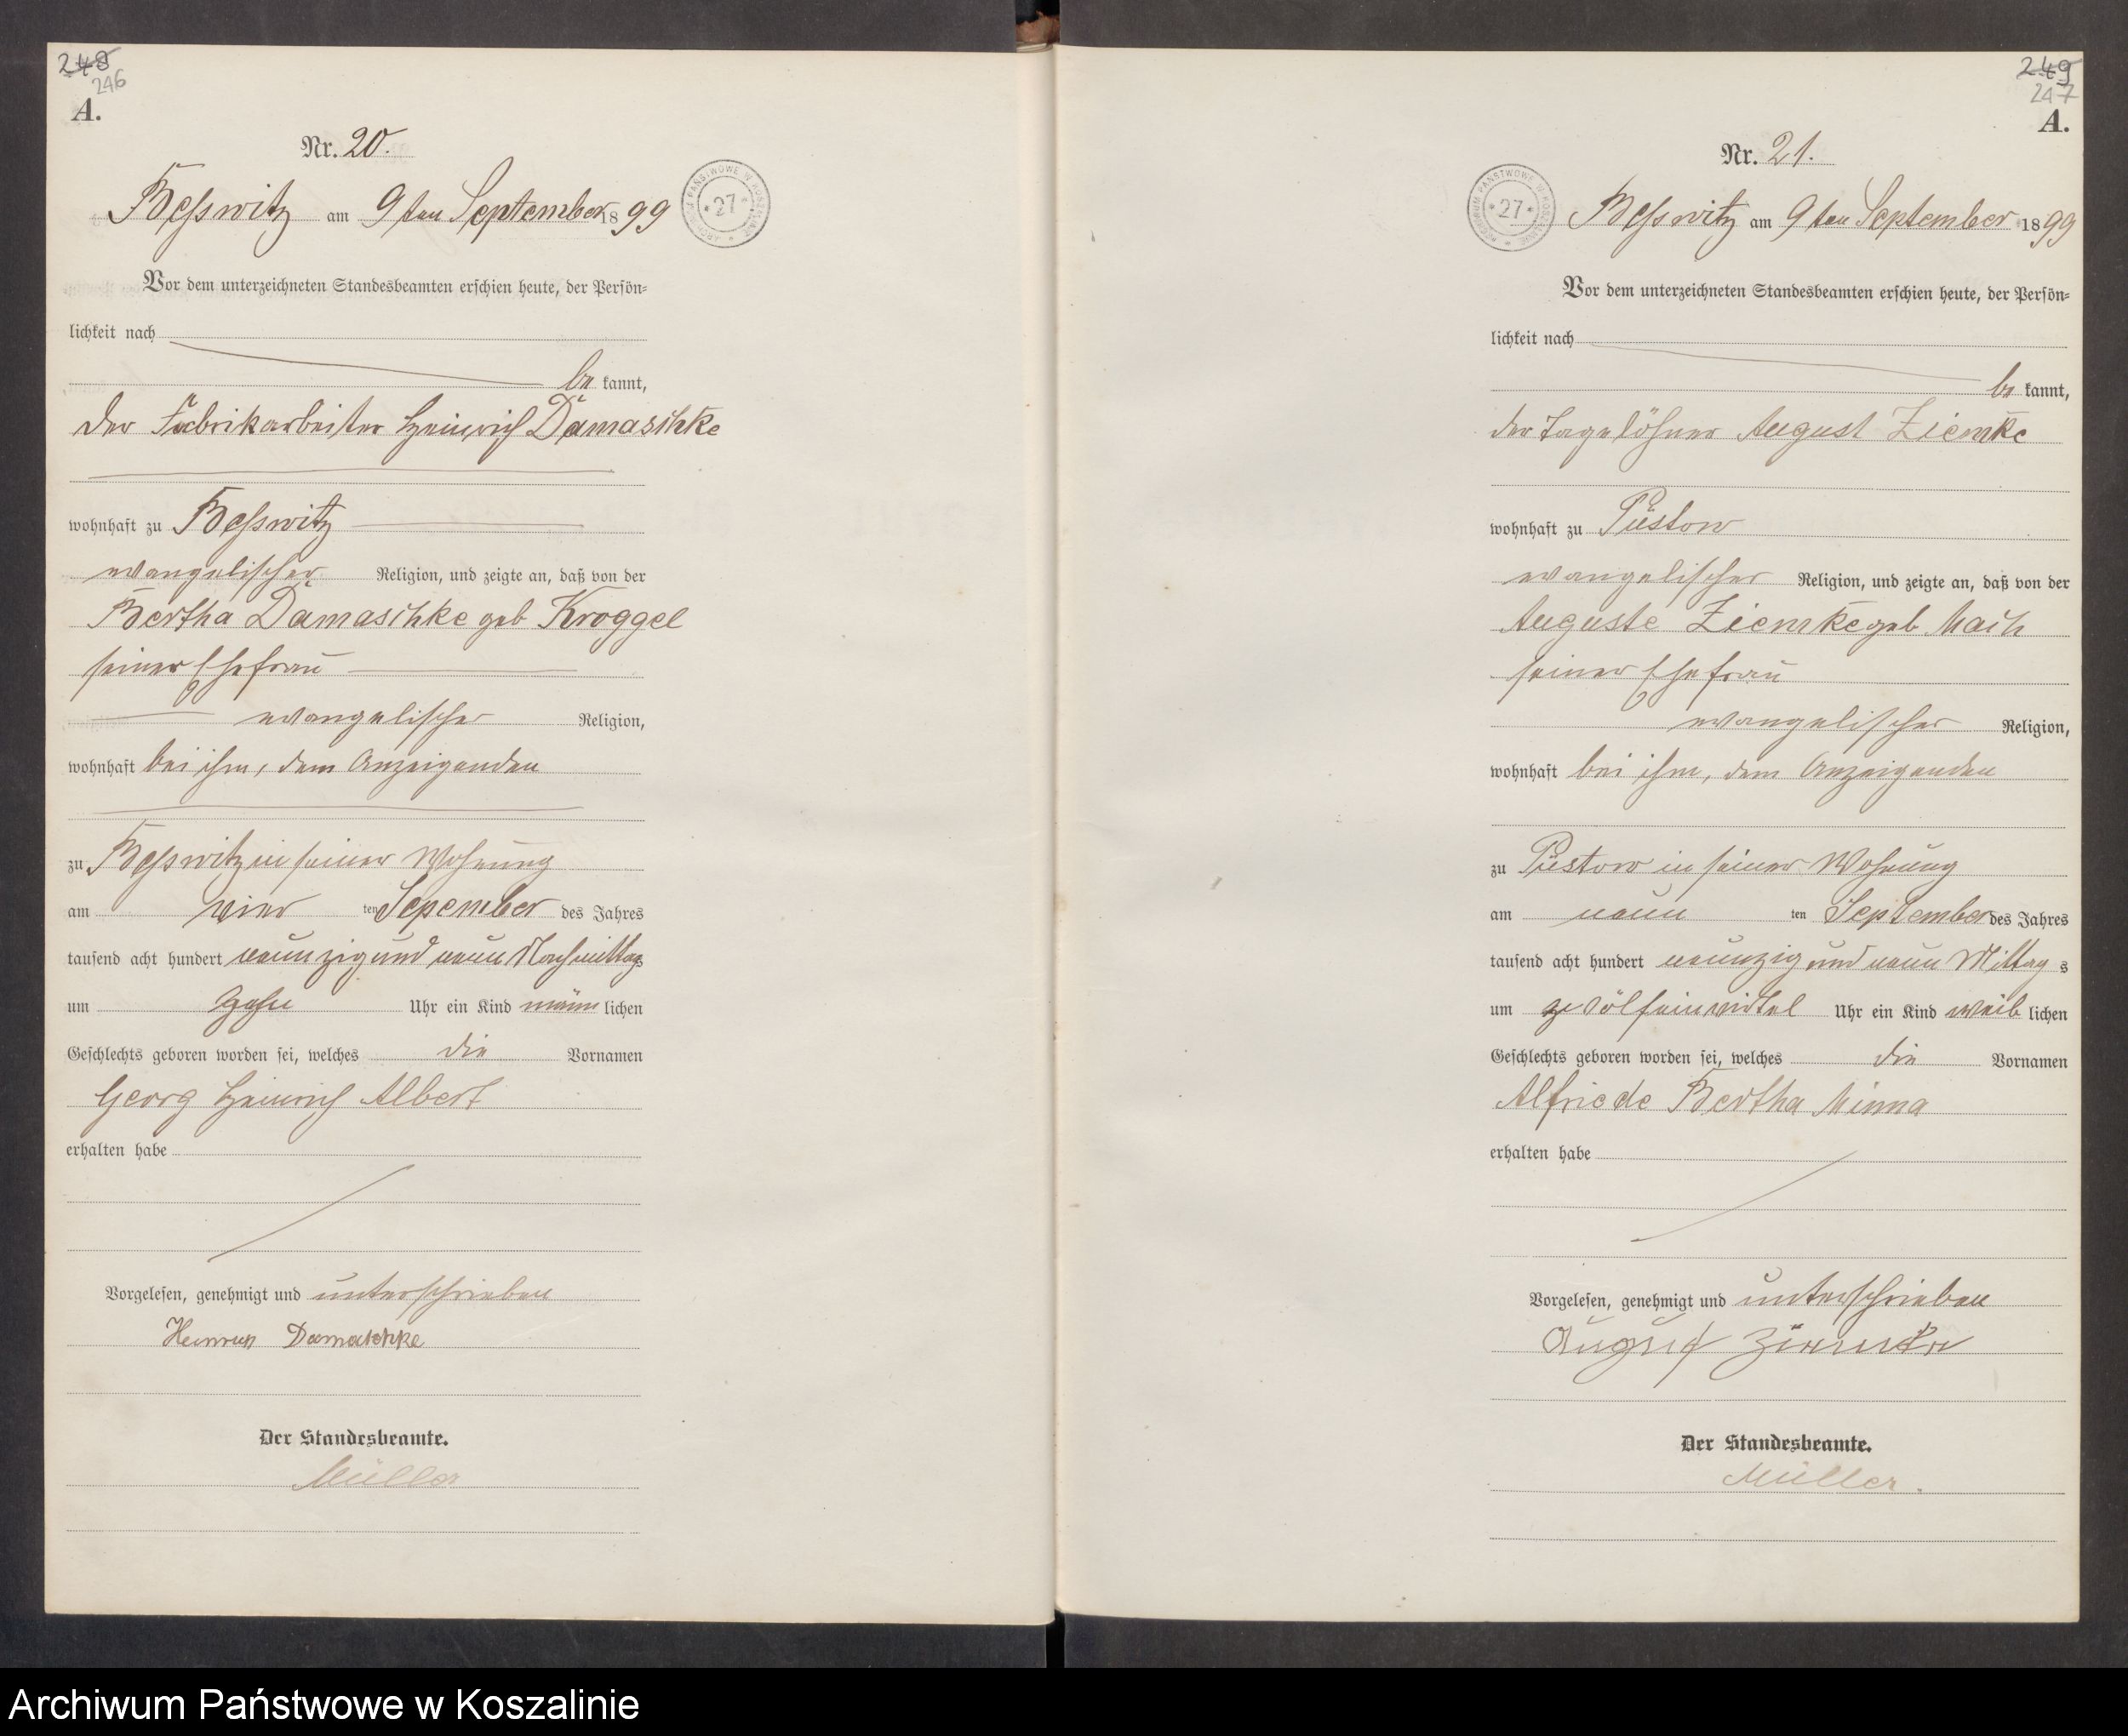 248
246
A.
Nr. 20.
Besswitz am 9ten September 1899
Vor dem unterzeichneten Standesbeamten erschien heute, der Persön-
lichkeit nach
be kannt,
der Fabrikarbeiter Heinrich Damaschke
wohnhaft zu Besswitz
evangelischer Religion, und zeigte an, daß von der
Bertha Damaschke geb Kroggel
seiner Ehefrau
evangelischer Religion,
wohnhaft bei ihm, dem Anzeigenden
zu Besswitz in seiner Wohnung
am vier ten Sepember des Jahres
tausend acht hundert neunzig und neun Nachmittags
um zehn Uhr ein Kind männlichen
Geschlechts geboren worden sei, welches die Vornamen
Georg Heinrich Albert
erhalten habe
Vorgelesen, genehmigt und unterschrieben
Heinrich Damaschke
Der Standesbeamte.
Müller
ARCHIWUM PAŃSTWOWE W KOSZALINIE
* 27 *
249
247
A.
Nr. 21.
Besswitz am 9ten September 1899
Vor dem unterzeichneten Standesbeamten erschien heute, der Persön-
lichkeit nach
be kannt,
der Tagelöhner August Ziemke
wohnhaft zu Püstow
evangelischer Religion, und zeigte an, daß von der
Auguste Ziemke geb Mach
seiner Ehefrau
evangelischer Religion,
wohnhaft bei ihm, dem Anzeigenden
zu Püstow in seiner Wohnung
am neun ten September des Jahres
tausend acht hundert neunzig und neun Mittags
um zwölfeinvirtel Uhr ein Kind weiblichen
Geschlechts geboren worden sei, welches die Vornamen
Alfriede Bertha Minna
erhalten habe
Vorgelesen, genehmigt und unterschrieben
August Ziemke
Der Standesbeamte.
Müller.
ARCHIWUM PAŃSTWOWE W KOSZALINIE
* 27 *
Archiwum Państwowe w Koszalinie